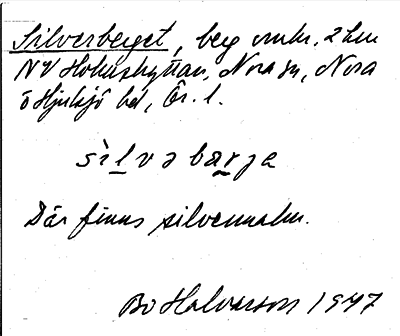 Silverberget, beg omkr. 2 km
NV Hokushyttan, Nora sn, Nora
o Hjulsjö bd, Ör. l.
sìlvəbarja
Där finns silvermalm.
Bo Halvarson 1947